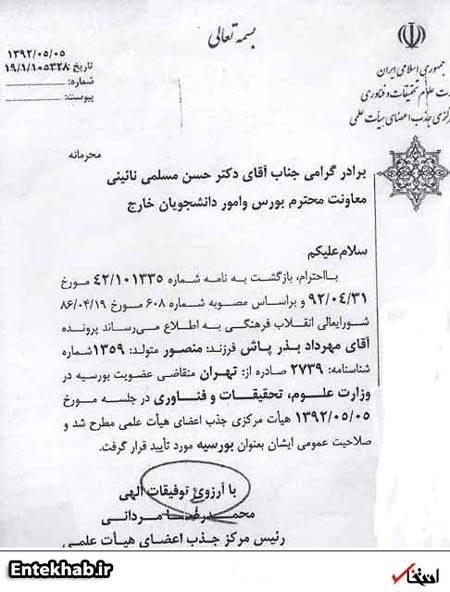 بسمه تعالی
جمهوری اسلامی ایران
علوم تحقیقات و فناوری
مرکزی جذب اعضای هیأت علمی
۱۳۹۲/۰۵/۰۵
تاریخ ۱۹/۱/۱۰۵۳۲۸
شماره:
پیوست:
محرمانه
برادر گرامی جناب آقای دکتر حسن مسلمی نائینی
معاونت محترم بورس وامور دانشجویان خارج
سلام علیکم
بااحترام، بازگشت به نامه شماره ۴۲/۱۰۱۳۳۵ مورخ
۹۲/۰۴/۳۱ و براساس مصوبه شماره ۶۰۸ مورخ ۸۶/۰۴/۱۹
شورایعالی انقلاب فرهنگی به اطلاع می‌رساند پرونده
آقای مهرداد بذر پاش فرزند: منصور متولد: ۱۳۵۹شماره
شناسنامه: ۲۷۳۹ صادره از: تهران متقاضی عضویت بورسیه در
وزارت علوم، تحقیقات و فناوری در جلسه مورخ
۱۳۹۲/۰۵/۰۵ هیأت مرکزی جذب اعضای هیأت علمی مطرح شد و
صلاحیت عمومی ایشان بعنوان بورسیه مورد تأیید قرار گرفت.
با آرزوی توفیقات الهی
محمدرضا مردانی
رئیس مرکز جذب اعضای هیأت علمی
Entekhab.ir
انتخاب